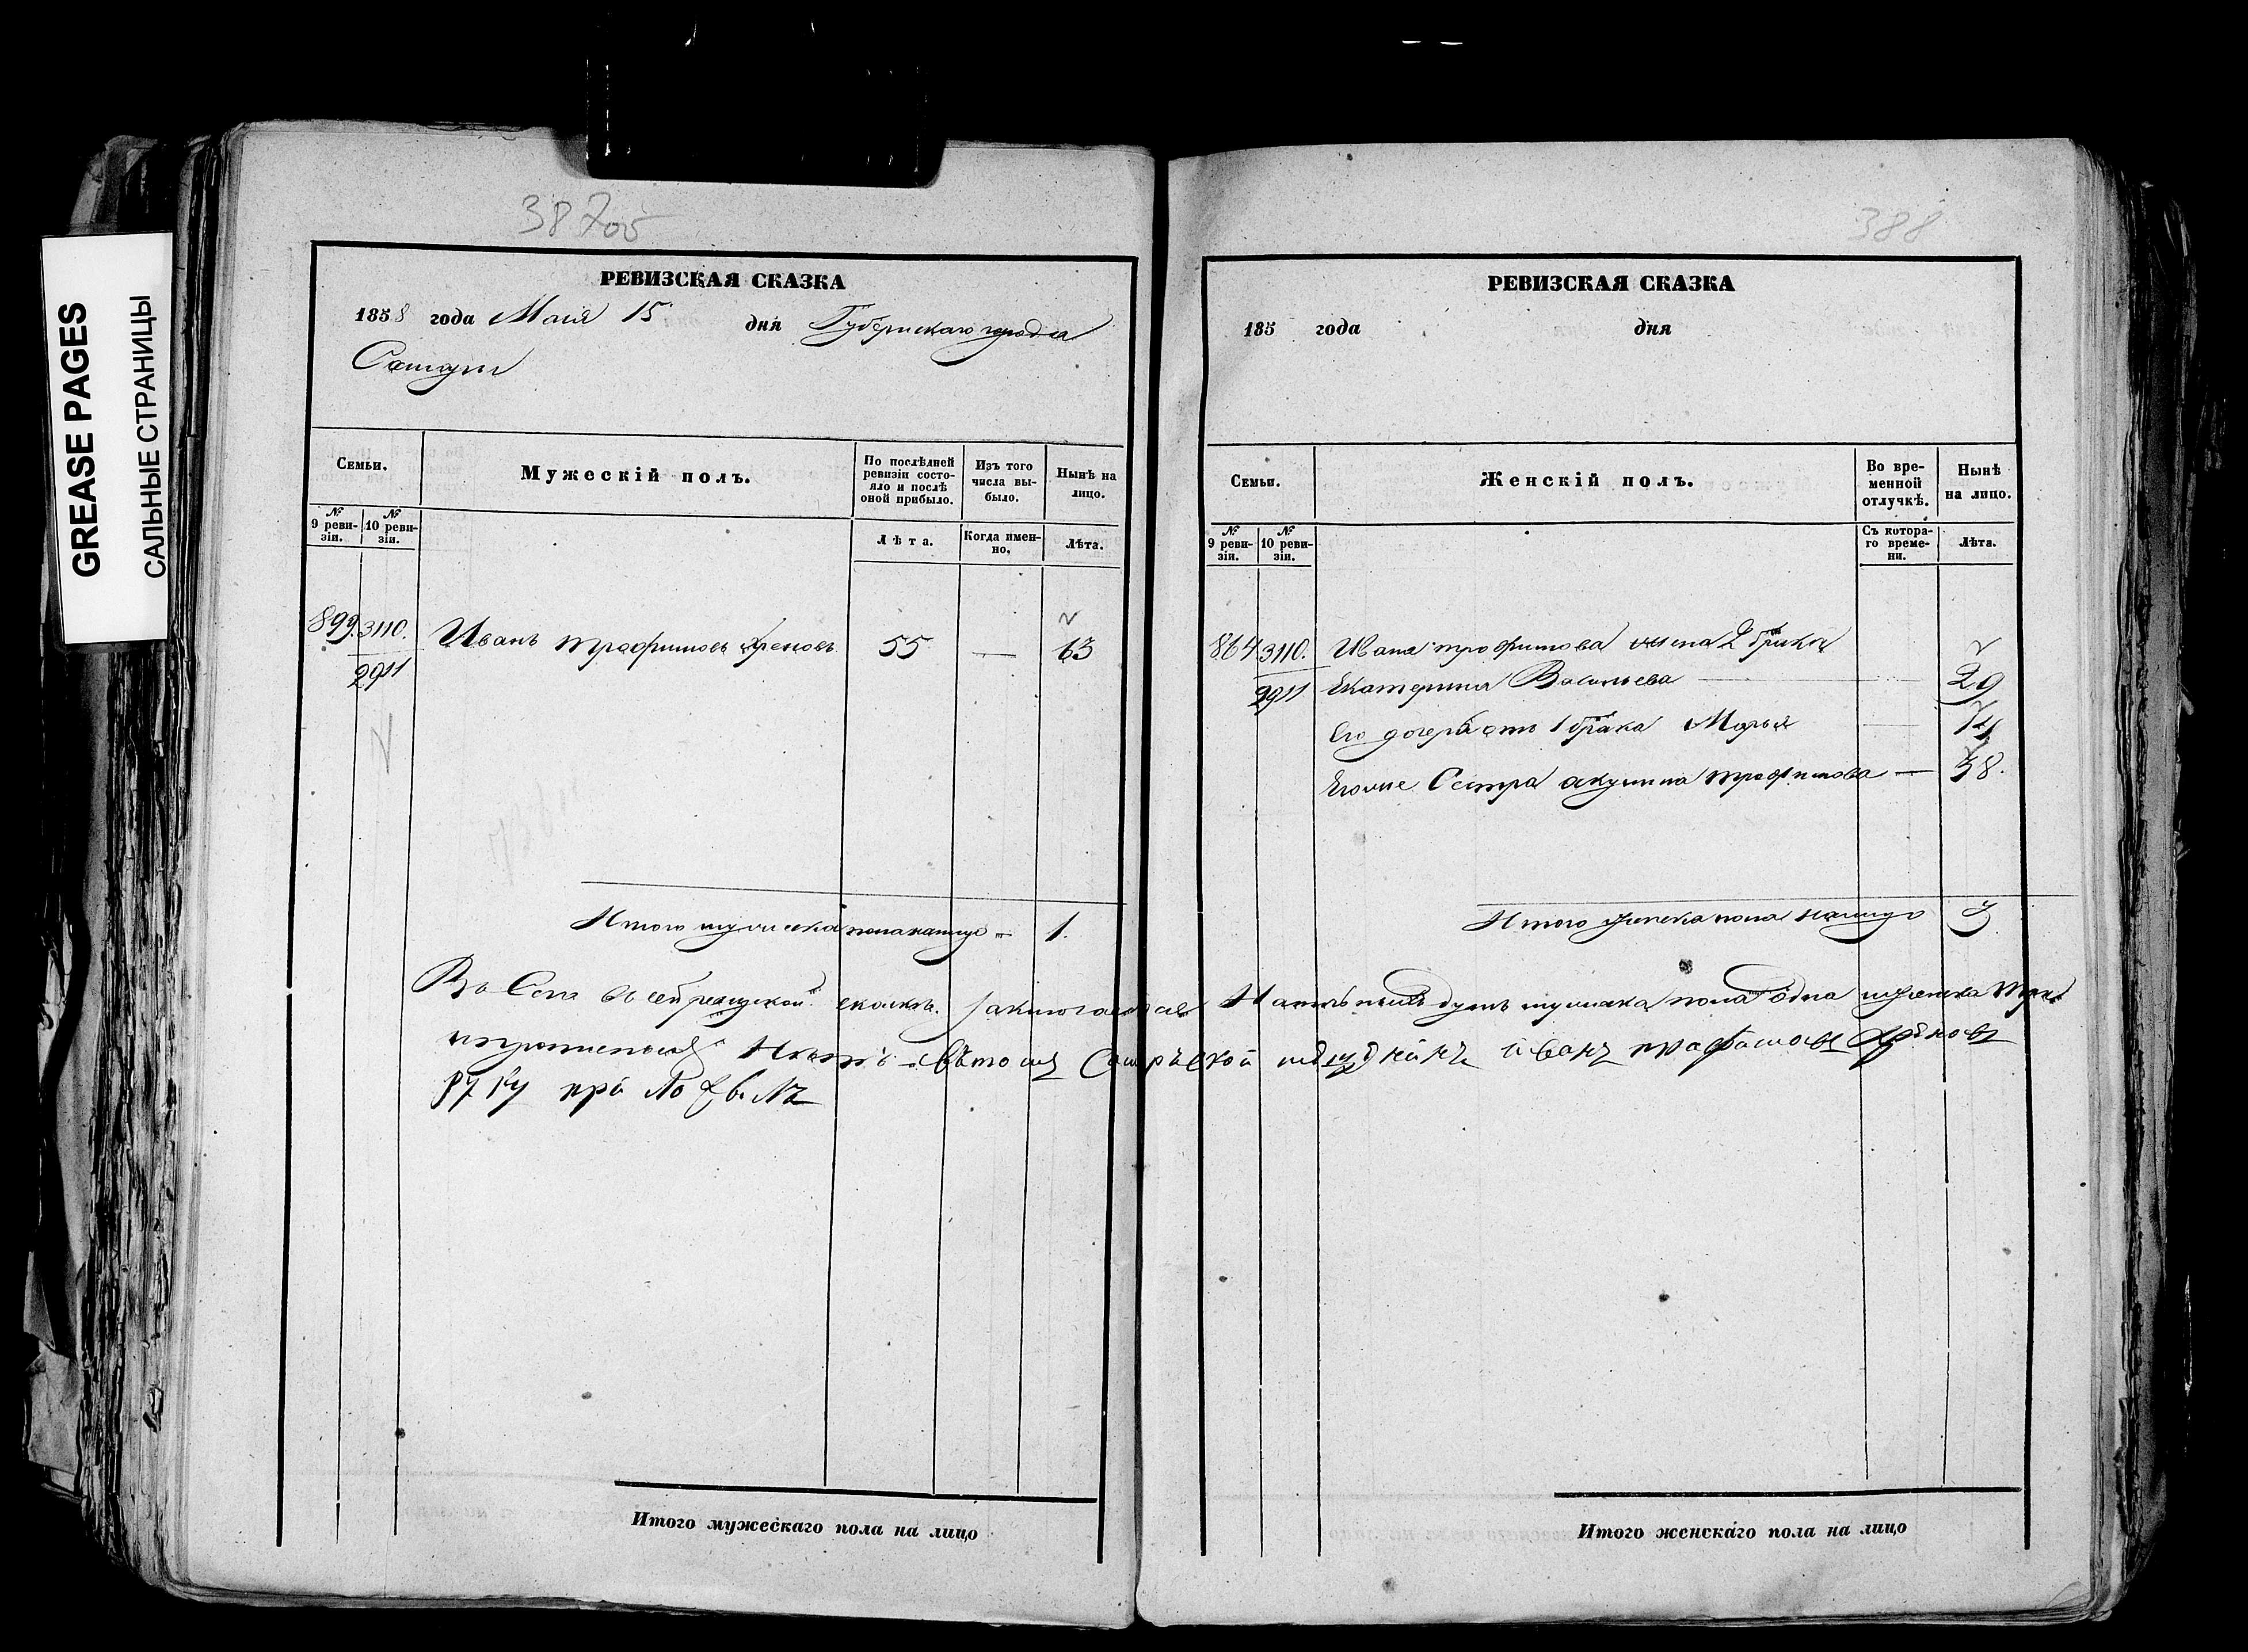 GREASE PAGES
САЛЬНЫЕ СТРАНИЦЫ
387об
РЕВИЗСКАЯ СКАЗКА
1858 года Мая 15 дня Губернскаго города
Самары
Семьи.
Мужескій полъ.
По послѣдней ревизіи состояло и послѣ оной прибыло.
Изъ того числа выбыло.
Нынѣ на лицо.
№ 9 ревизіи.
№ 10 ревизіи.
Лѣта.
Когда именно.
Лѣта.
899. 3110. Иванъ Трофимовъ Хреновъ 55 — 63
2911
Итого мужеска пола налицо — 1.
Итого мужескаго пола на лицо
388
РЕВИЗСКАЯ СКАЗКА
185 года дня
Семьи.
Женскій полъ.
Во временной отлучкѣ.
Нынѣ на лицо.
№ 9 ревизіи.
№ 10 ревизіи.
Съ котораго времени.
Лѣта.
864 3110. Ивана Трофимова жена 2 брака
2911 Екатерина Васильева — 29
Его дочерь отъ 1 брака Марья — 14
Егоже Сестра акулина трофимова — 58.
Итого женска пола налицо 3
Въ Сей ревизской скаске заключается Наличныхъ душъ мужска пола одна женска три
Самарской иванъ
руку
Итого женскаго пола на лицо